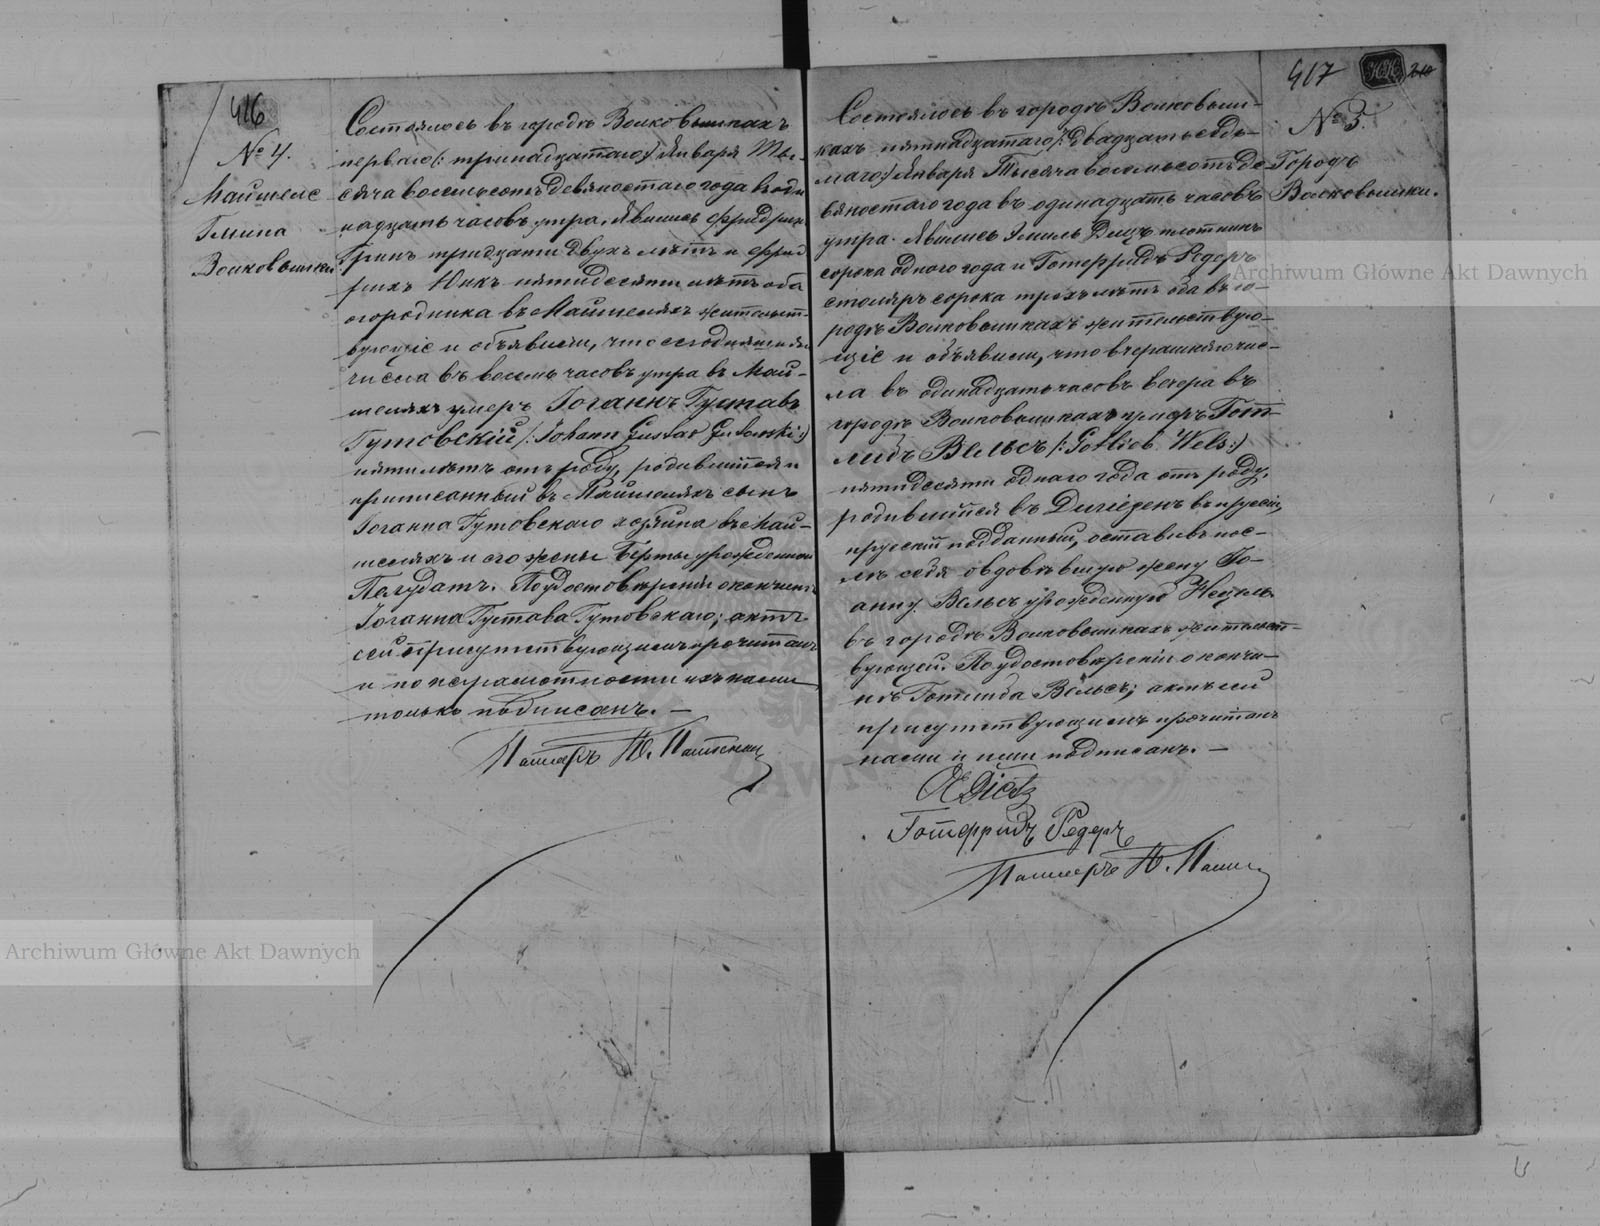 416
№ 4.
Маишеле
Гмина
Волковышки
Состоялось въ городѣ Волковышкахъ
перваго /: тринадцатаго :/ Января Ты-
сяча восемьсотъ девяностаго года въ оди
надцать часовъ утра. Явились Фридрихъ
Гринъ тридцати двухъ лѣтъ и Фрид
рихъ Юкъ пятидесяти лѣтъ оба
огородника въ Маишеляхъ жительст-
вующіе и объявили, что сегодняшняго
числа въ восемь часовъ утра въ Маи-
шеляхъ умеръ Іоганнъ Густавъ
Гутовскій /: Johann Gustav Gutowski :/
пяти лѣтъ отъ роду, родившійся и
приписанный въ Маишеляхъ сынъ
Іоганна Гутовскаго хозяина въ Маи-
шеляхъ и его жены Берты урожденной
Пелудатъ. По удостовѣреніи о кончинѣ
Іоганна Густава Гутовскаго; актъ
сей присутствующимъ прочитанъ
и по неграмотности ихъ нами
только подписанъ. —
Пасторъ
417
№ 5.
Городъ
Волковышки.
Состоялось въ городѣ Волковыш-
кахъ пятнадцатаго /: двадцать седь-
маго :/ Января Тысяча восемьсотъ де
вяностаго года въ одинадцать часовъ
утра. Явились Эмиль Дицъ плотникъ
сорока одного года и Готфридъ Редеръ
столяръ сорока трехъ лѣтъ оба въ го-
родѣ Волковышкахъ жительствую-
щіе и объявили, что вчерашняго чис-
ла въ одинадцать часовъ вечера въ
городѣ Волковышкахъ умеръ Гот-
либъ Вельсъ /: Gotlieb Wels :/
пятидесяти одного года отъ роду,
родившійся въ въ Пруссіи
прусскій подданный, оставивъ пос-
лѣ себя овдовѣвшую жену Іо-
анну Вельсъ урожденную
въ городѣ Волковышкахъ жительст-
вующей. По удостовѣреніи о кончи-
нѣ Готлиба Вельсъ; актъ сей
присутствующимъ прочитанъ
нами и ими подписанъ. —
Dietz
Готфридъ Редеръ
Пасторъ
Archiwum Główne Akt Dawnych
Archiwum Główne Akt Dawnych